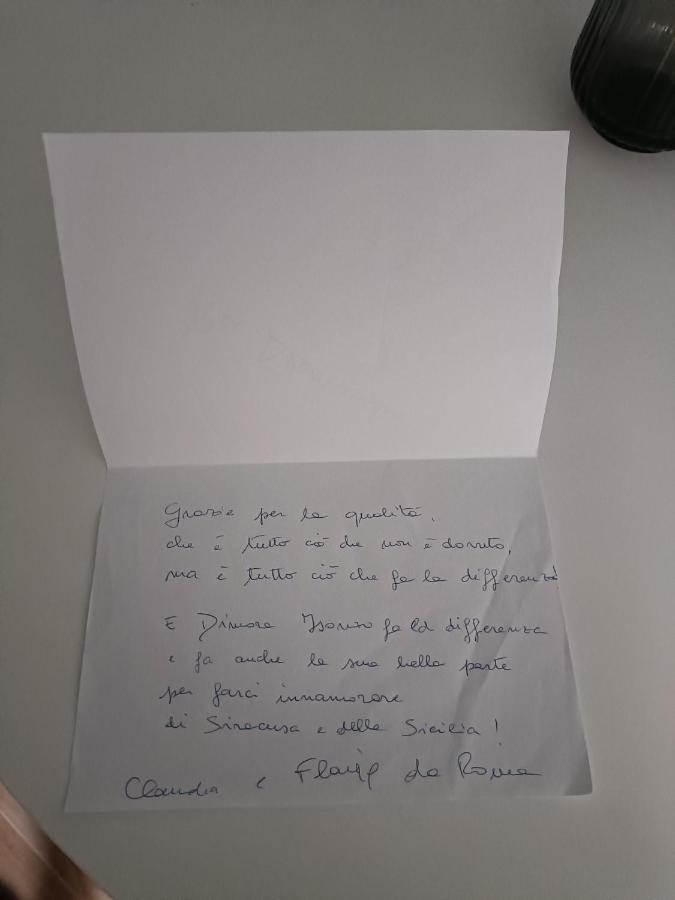 Grazie per la qualità,
che è tutto ciò che non è dovuto,
ma è tutto ciò che fa la differenza!
E Dimora Isonzo fa la differenza
e fa anche la sua bella parte
per farci innamorare
di Siracusa e della Sicilia!
Claudia e da Roma